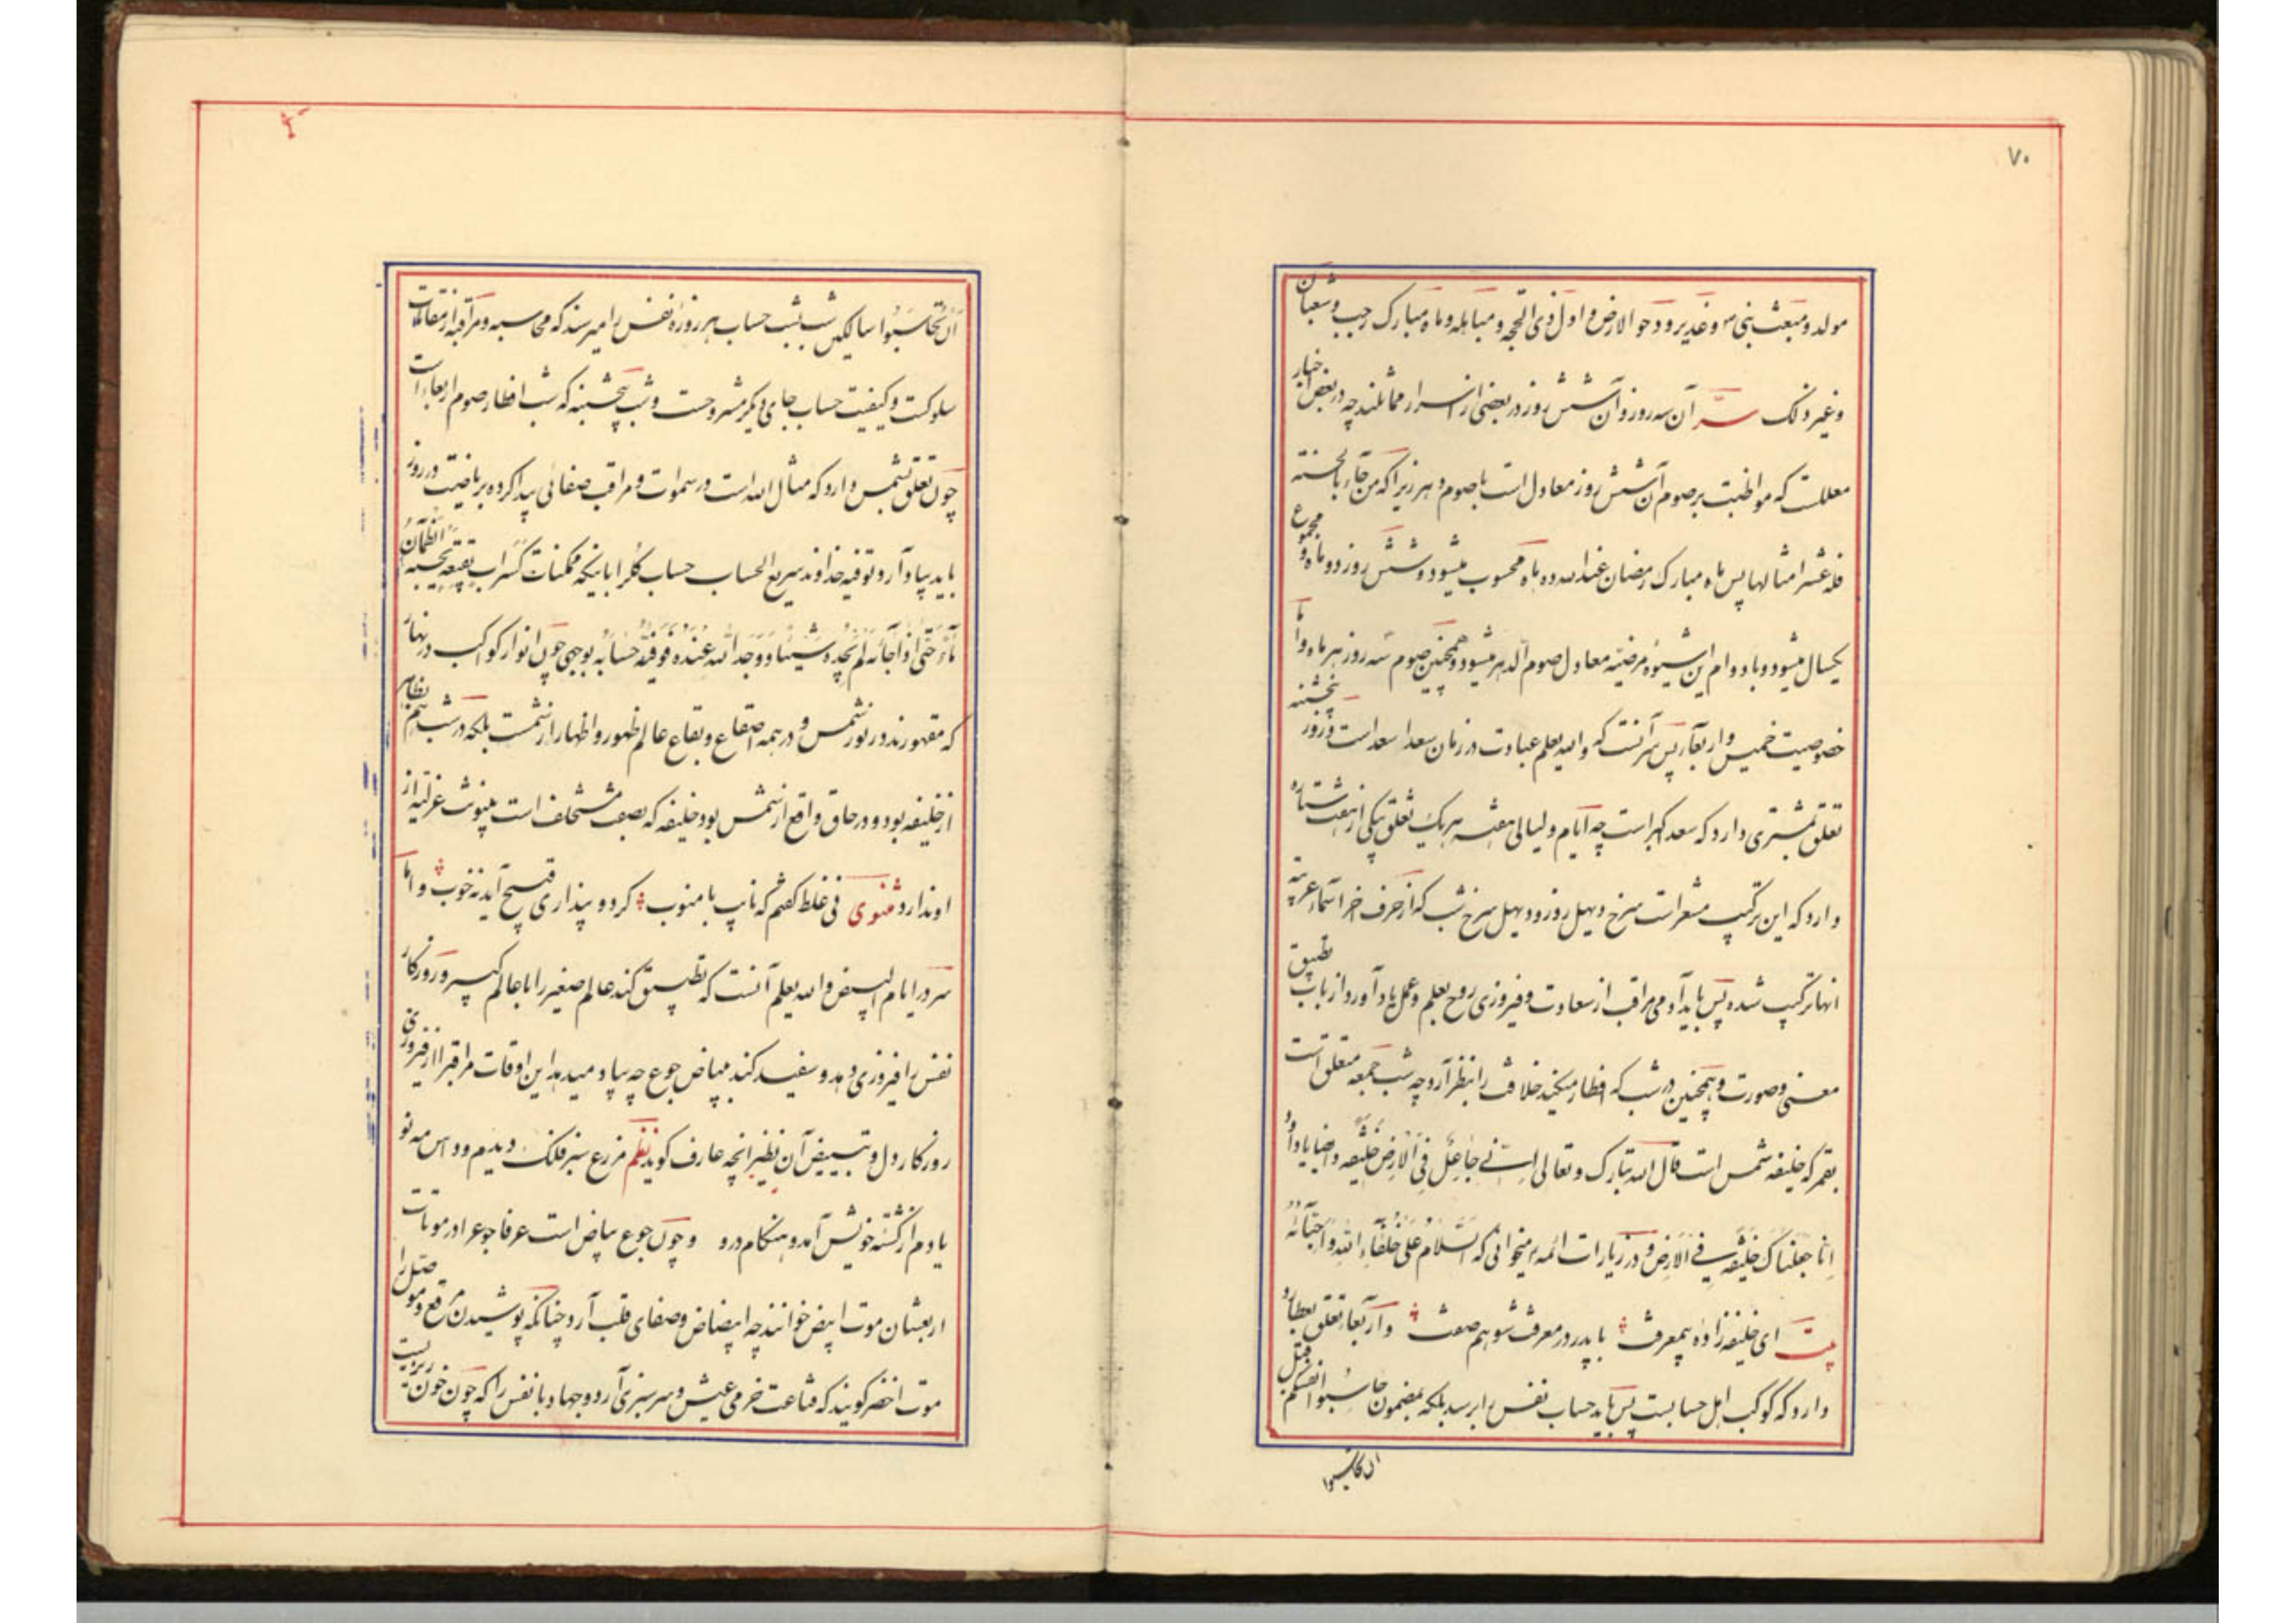 ۷۰
مولد و مبعث نبی ص و غدیر و دحو الارض و اول ذی الحجه و مباهله و ماه مبارک رجب و شعبان
و غیر ذلک سرّ آن سه روز و آن شش روز در بعضی از اسرار مماثلند چه در بعض اخبار
معللست که مواظبت بر صوم آن شش روز معادل است با صوم دهر زیرا که من جآء بالحسنة
فله عشر امثالها پس ماه مبارک رمضان عند الله ده ماه محسوب میشود و شش روز دو ماه و مجموع
یکسال میشود و با دوام این شیوه مرضیه معادل صوم الدهر میشود و همچنین صوم سه روز هر ماه و اما
خصوصیت خمیس و اربعآء پس سر آنست که و الله یعلم عبادت در زمان سعد اسعد است و روز پنجشنبه
تعلق بمشتری دارد که سعد اکبر است چه ایام و لیالی هفته هر یک تعلق بیکی از هفت ستاره
دارد که این ترکیب مشعر است سنرخ دیهل روز و دیهل سرخ شب که از حرف اخر اسمآء عربیه
انها ترکیب شده پس باید آدمی مراقب از سعادت و فیروزی روح بعلم و عمل یاد آورد از باب تطبیق
معنی و صورت و همچنین در شب که افطار میکنید خلافت را بنظر آرد چه شب جمعه متعلق است
بقمر که خلیفه شمس است قال الله تبارک و تعالی اِنّی جَاعِلٌ فِی الْاَرْضِ خَلیفَه و ایضا یا داود
اِنّا جَعَلْناکَ خَلیفَةً فِی الْاَرْضِ و در زیارات ائمه میخوانی که اَلسَّلامُ عَلی خُلَفآءِ اللهِ وَ اَحِبّآئه
بیت ای خلیفه زاده بیمعرفت با پدر در معرفت شو هم صفت و اربعآء تعلق بعطارد
دارد که کوکب اهل حسابست پس باید حساب نفس را برسد بلکه بمضمون حاسبوا انفسکم قبل
ان تحاسبوا
اَنْ تُحاسَبُوا سالکین شب بشب حساب هر روزۀ نفس را میرسند که محاسبه و مراقبه از مقامات
سلوکست و کیفیت حساب جای دیگر مشروحست و شب پنجشنبه که شب افطار صوم اربعاء است
چون تعلق بشمس دارد که مثال الله است در سموات و مراقب صفائی پیدا کرده بریاضیت در روز
باید بیاد آرد توفیه خداوند سریع الحساب حساب کل را باینکه ممکنات کَسَرابٍ بِقیعَةٍ یَحْسَبُهُ الظَّمْآنُ
مآءً حَتّی اِذا جآئَهُ لَمْ یَجِدْهُ شَیْئاً وَ وَجَدَ اللهَ عِنْدَهُ فَوَفّیهُ حِسابَهُ بوجهی چون انوار کواکب در نهار
که مقهورند در نور شمس و در همه اصقاع و بقاع عالم ظهور و اظهار از شمست بلکه در شب هم بظاهر
از خلیفه بود و در حاق واقع از شمس بود خلیفه که بصفت مستخلف است بینونت عزلیه از
او ندارد مثنوی نی غلط گفتم که نایب با منوب گر دو پنداری قبیح آید نه خوب و اما
سر در ایام البیض و الله یعلم آنست که تطبیق کند عالم صغیر را با عالم کبیر و روزگار
نفس را فیروزی دهد و سفید کند ببیاض جوع چه بیاد میدهد این اوقات مراقب را از فیروزی
روزگار دل و تبییض آن نظیر انچه عارف گوید نظم مزرع سبز فلک دیدم و داس مه نو
یادم از کشتۀ خویش آمد و هنگام درو و چون جوع بیاض است عرفا جوع را در موتات
اربعشان موت ابیض خوانند چه ابیضاض و صفای قلب آرد چنانکه پوشیدن مرقع و موصل را
موت اخضر گویند که قناعت خرمی عیش و سرسبزی آرد و جهاد با نفس را که چون خون ریزیست